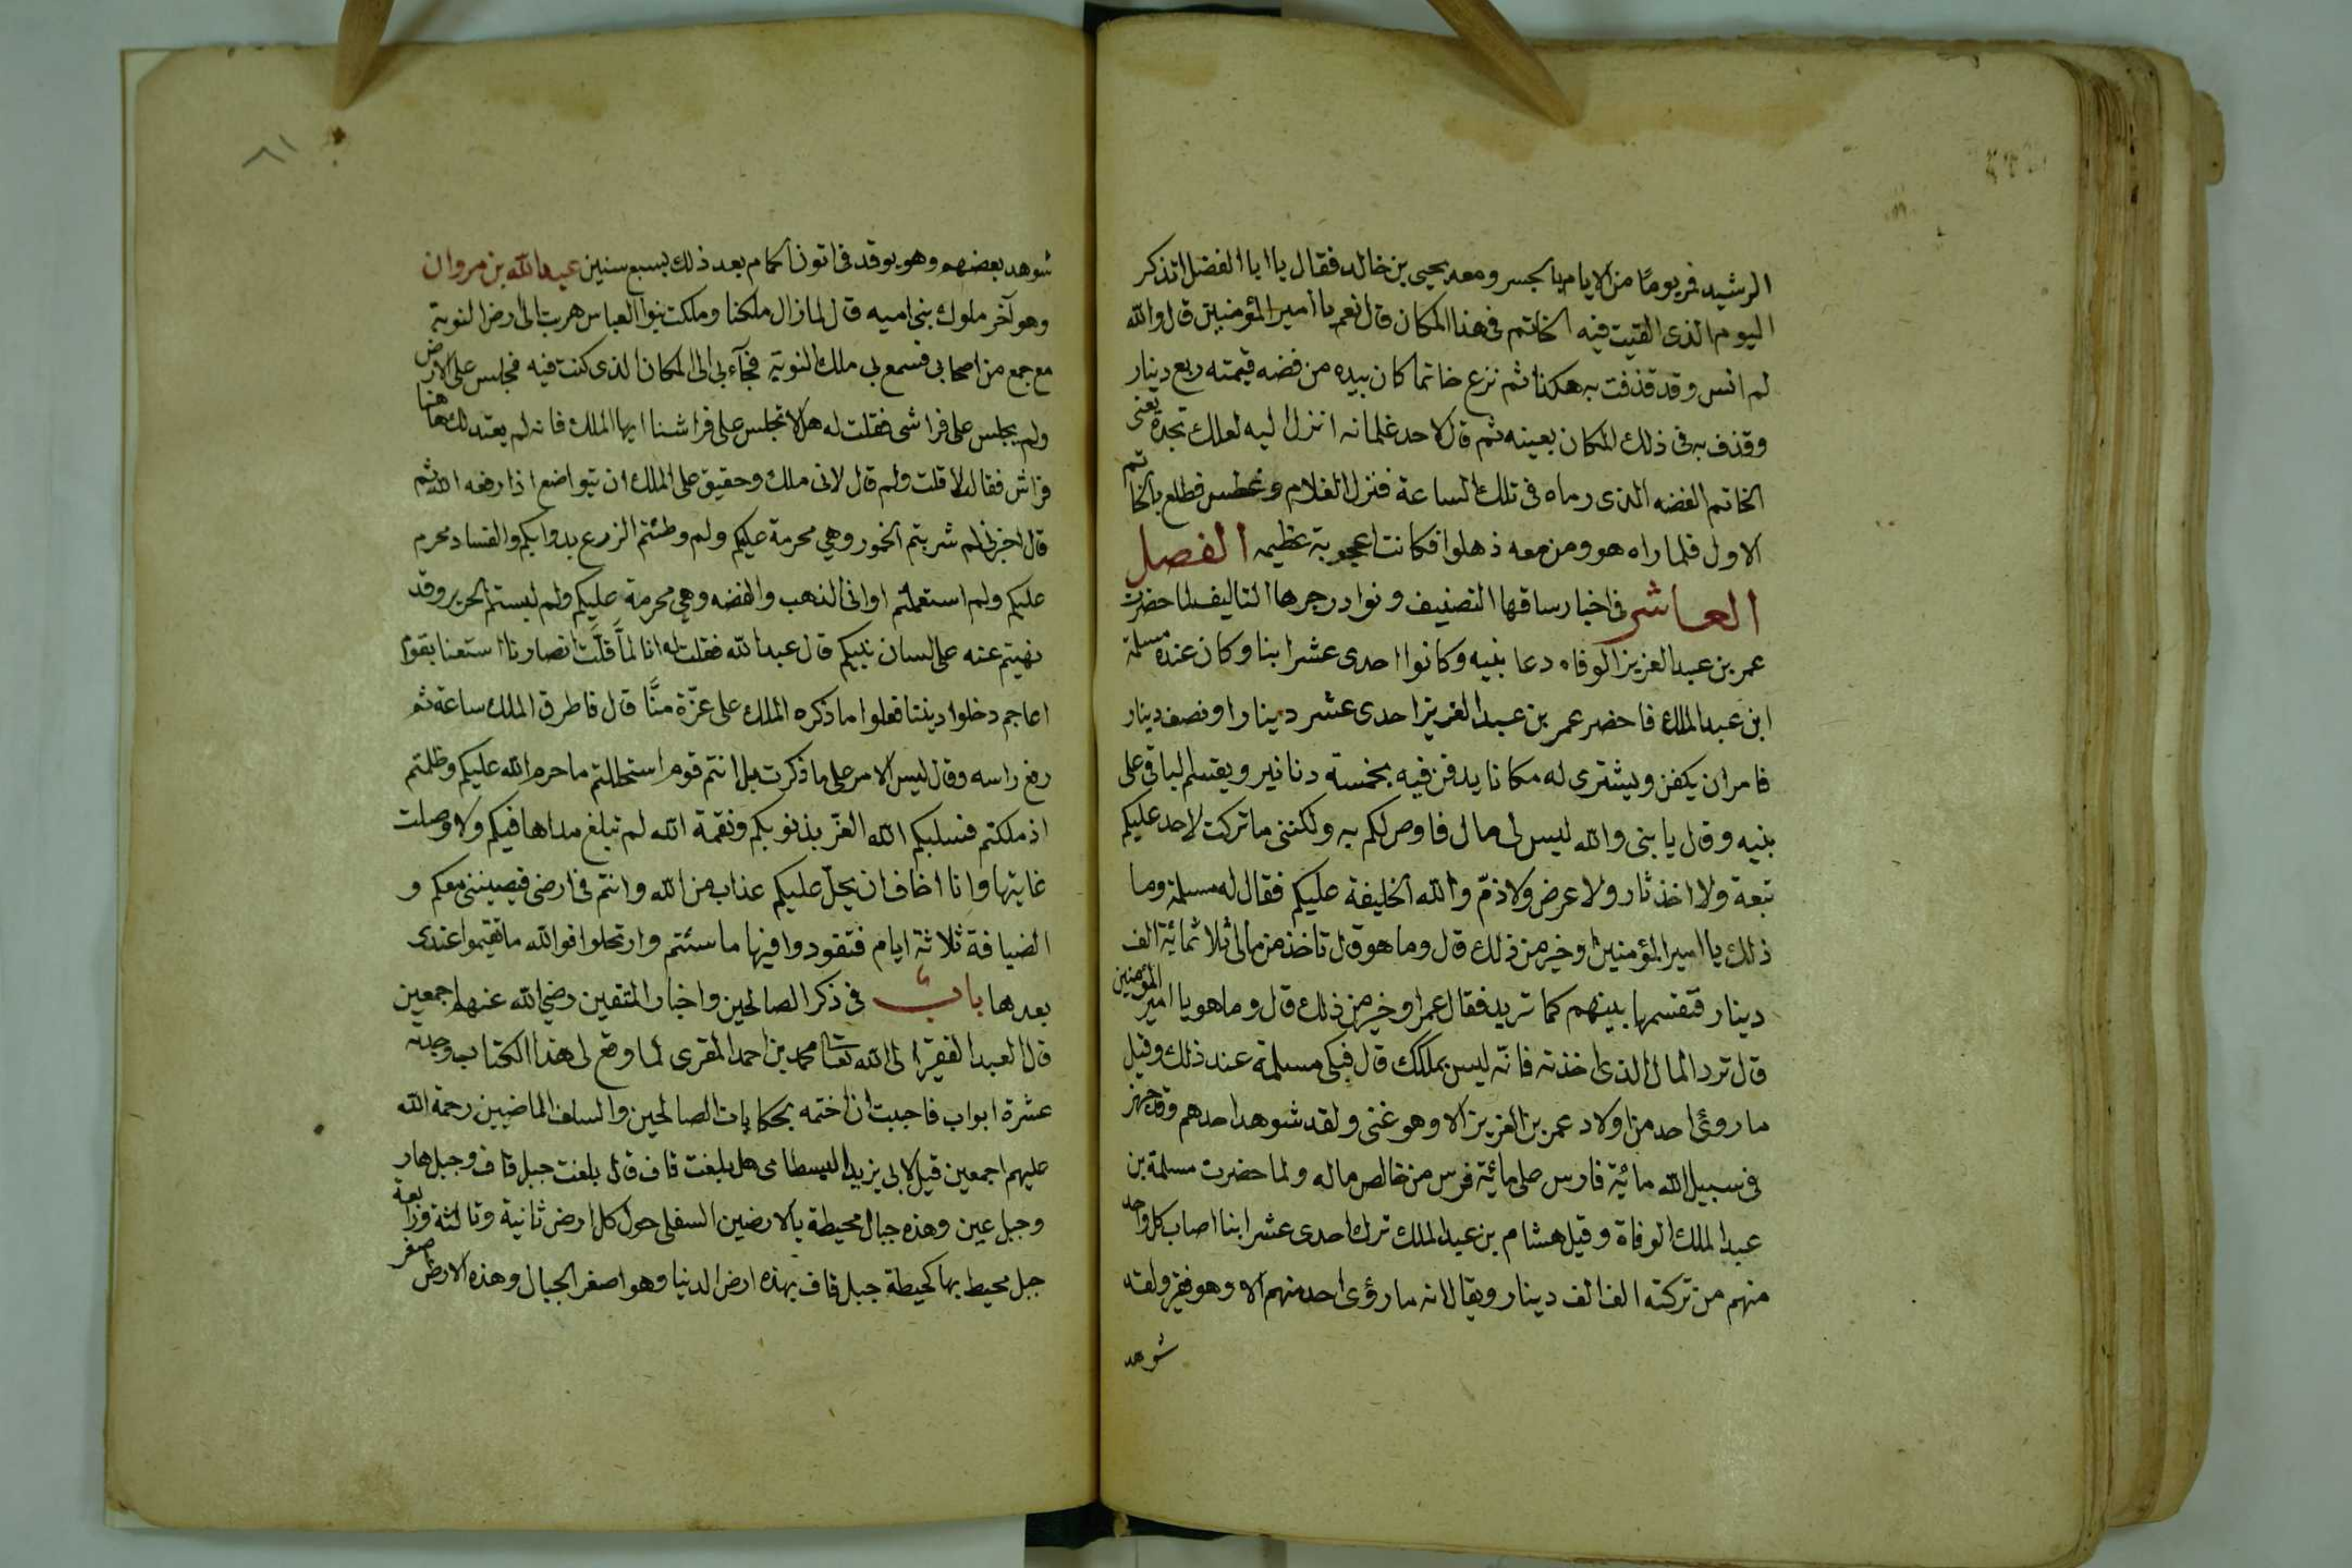 الرشيد فمر يومًا من الايام بالجسر ومعه يحيى بن خالد فقال يا ابا الفضل اتذكر
اليوم الذى القيت فيه الخاتم فى هذا المكان قال نعم يا امير المؤمنين قال والله
لم انس وقد قذفت به هكذا ثم نزع خاتما كان بيده من فضه قيمته ربع دينار
وقذف به فى ذلك المكان بعينه ثم قال لاحد غلمانه انزل اليه لعلك تجده يعنى
الخاتم الفضه الذى رماه فى تلك الساعة فنزل الغلام وغطس فطلع بالخاتم
الاول فلما راه هو ومن معه ذهلوا فكانت اعجوبة عظيمه الفصل
العاشر فى اخبار ساقها التصنيف ونوادر جرها التاليف لما حضرت
عمر بن عبد العزيز الوفاه دعا بنيه وكانوا احدى عشر ابنا وكان عنده مسلمة
ابن عبد الملك فاحضر عمر بن عبد العزيز احدى عشر دينارا ونصف دينار
فامر ان يكفن ويشترى له مكانا يدفن فيه بخمسة دنانير ويقسم الباقى على
بنيه وقال يا بنى والله ليس لى مال فاوصى لكم به ولكننى ما تركت لاحد عليكم
تبعة ولا اخذ ثار ولا عرض ولا ذمّ والله الخليفة عليكم فقال له مسلمة وما
ذلك يا امير المؤمنين وخير من ذلك قال وما هو قال تاخذ من مالى ثلاثمائة الف
دينار فتقسمها بينهم كما تريد فقال عمر او خير من ذلك قال وما هو يا امير المؤمنين
قال ترد المال الذى اخذته فانه ليس بملكك قال فبكى مسلمة عند ذلك وقيل
ما روئى احد من اولاد عمر بن العزيز الا وهو غنى ولقد شوهد احدهم وقد جهز
فى سبيل الله مائة فارس على مائة فرس من خالص ماله ولما حضرت مسلمة بن
عبد الملك الوفاة وقيل هشام بن عبد الملك ترك احدى عشر ابنا اصاب كل واحد
منهم من تركته الف الف دينار ويقال انه ما رؤى احد منهم الا وهو فقير ولقد
شوهد
٦١
شوهد بعضهم وهو يوقد فى اتون الحمام بعد ذلك بسبع سنين عبد الله بن مروان
وهو آخر ملوك بنى اميه قال لما زال ملكنا وملكت بنوا العباس هربت الى ارض النوبة
مع جمع من اصحابى فسمع بى ملك النوبة فجآء بى الى المكان الذى كنت فيه فجلس على الارض
ولم يجلس على فراشى فقلت له هلا تجلس على فراشنا ايها الملك فانه لم يعتد لك هاهنا
فراش فقال لا قلت ولم قال لانى ملك وحقيق على الملك ان يتواضع اذا رفعه الله ثم
قال اخبرنى لم شربتم الخمور وهي محرمة عليكم ولم وطئتم الزرع بدوابكم والفساد محرم
عليكم ولم استعملتم اوانى الذهب والفضه وهي محرمة عليكم ولم لبستم الحرير وقد
نهيتم عنه على لسان نبيكم قال عبد الله فقلت له انا لمّا قلّت انصارنا استعنا بقوم
اعاجم دخلوا ديننا فعلوا ما ذكره الملك على عزّة منّا قال فاطرق الملك ساعة ثم
رفع راسه وقال ليس الامر على ما ذكرت بل انتم قوم استحللتم ما حرم الله عليكم وظلمتم
اذ ملكتم فسلبكم الله العزّ بذنوبكم ونقمة الله لم تبلغ مداها فيكم ولا وصلت
غايتها وانا اخاف ان يحلّ عليكم عذاب من الله وانتم فى ارضى فيصيبنى معكم و
الضيافة ثلاثة ايام فتقودوا فيها ما سئتم وارتحلوا فوالله ما تقيموا عندى
بعدها باب فى ذكر الصالحين واخبار المتقين رضي الله عنهم اجمعين
قال العبد الفقير الى الله تعالى محمد بن احمد المقرى لما وقع لى هذا الكتاب وجدته
عشرة ابواب فاحببت ان اختمه بحكايات الصالحين والسلف الماضيين رحمة الله
عليهم اجمعين قيل لابى يزيد البسطامى هل بلغت قاف قال بلغت جبل قاف وجبل هار
وجبل عين وهذه جبال محيطة بالارضين السفلى حول كل ارض ثانية وثالثة ورابعة
جبل محيط بها كحيطة جبل قاف بهذه ارض الدنيا وهو اصغر الجبال وهذه الارض اصغر